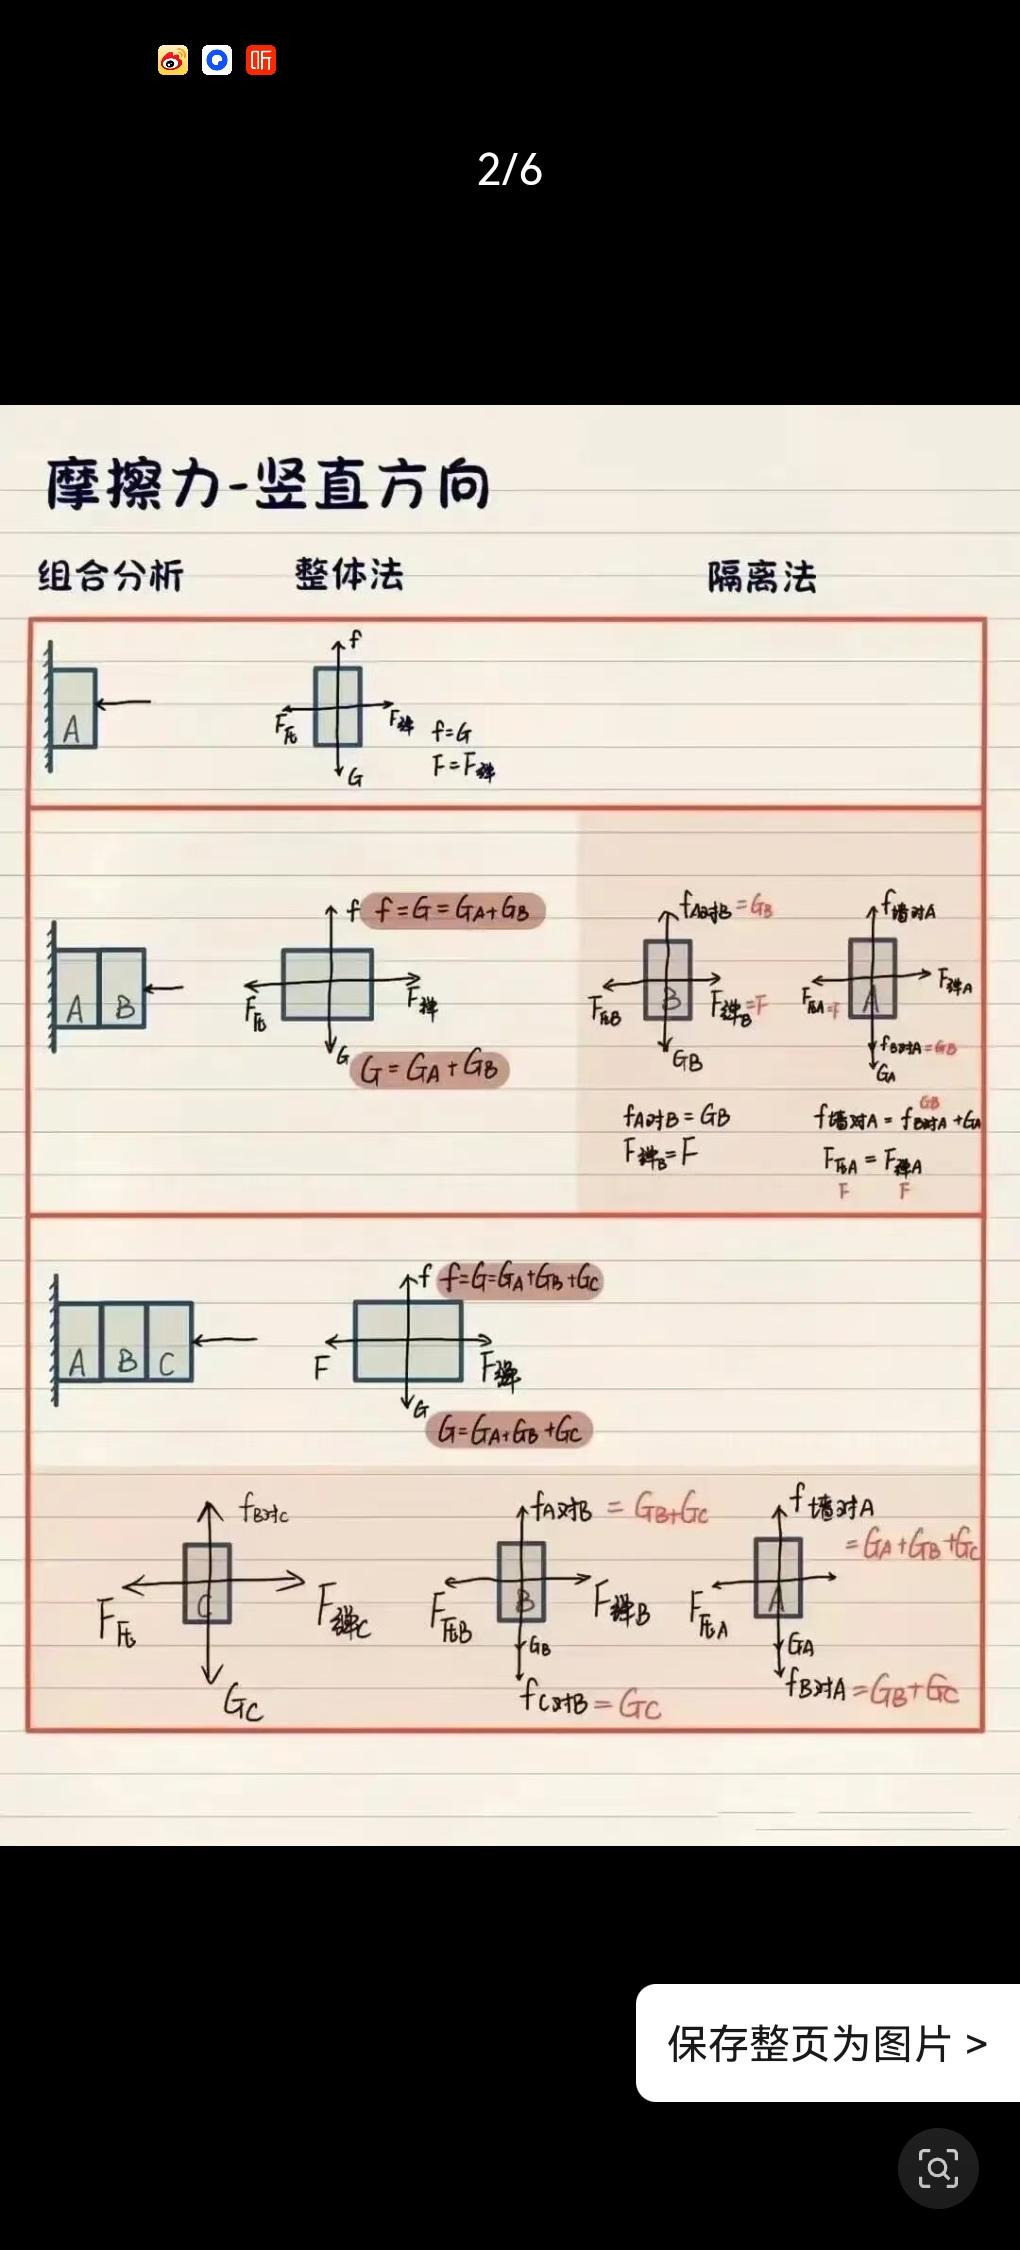 听
2/6
摩擦力-竖直方向
组合分析 整体法 隔离法
A
f
F压 F弹
G
f=G
F=F弹
A B
f f=G=GA+GB
F压 F弹
G G=GA+GB
fA对B=GB
F压B B F弹B=F
GB
fA对B=GB
F弹B=F
f墙对A
F压A=F A F弹A
fB对A=GB
GA
GB
f墙对A=fB对A+GA
F压A=F弹A
F F
A B C
f f=G=GA+GB+GC
F F弹
G
G=GA+GB+GC
fB对C
F压 C F弹C
GC
fA对B=GB+GC
F压B B F弹B
GB
fC对B=GC
f墙对A
=GA+GB+GC
F压A A
GA
fB对A=GB+GC
保存整页为图片 >